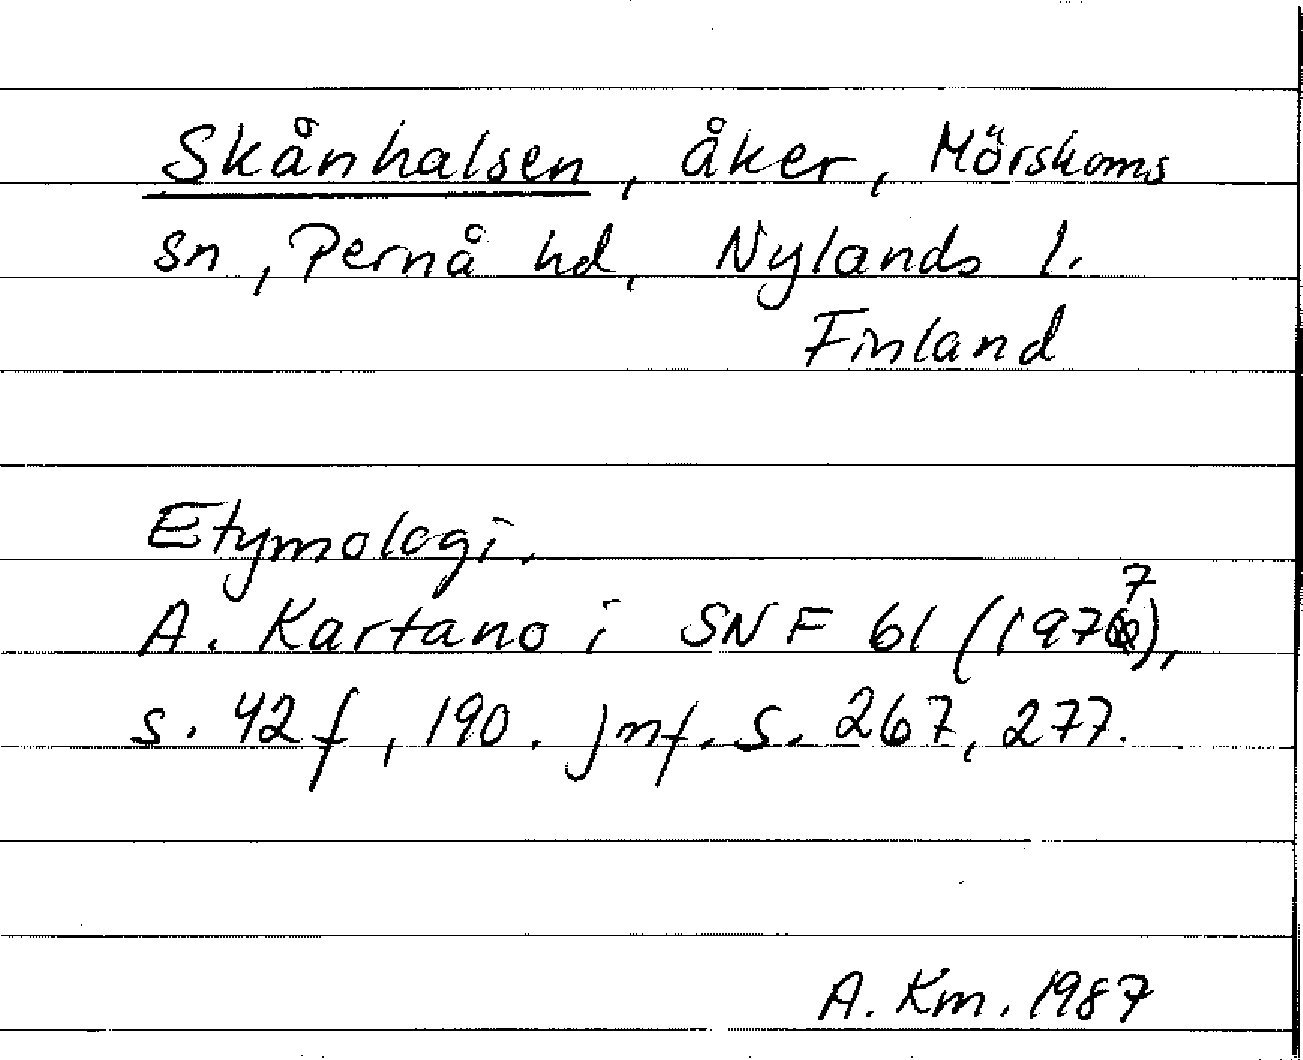 Skånhalsen, åker, Mörskoms
sn, Pernå hd, Nylands l.
Finland
Etymologi.
A. Kartano i SNF 61 (1977),
s. 42 f, 190. Jmf. s. 267, 277.
A. Km. 1987